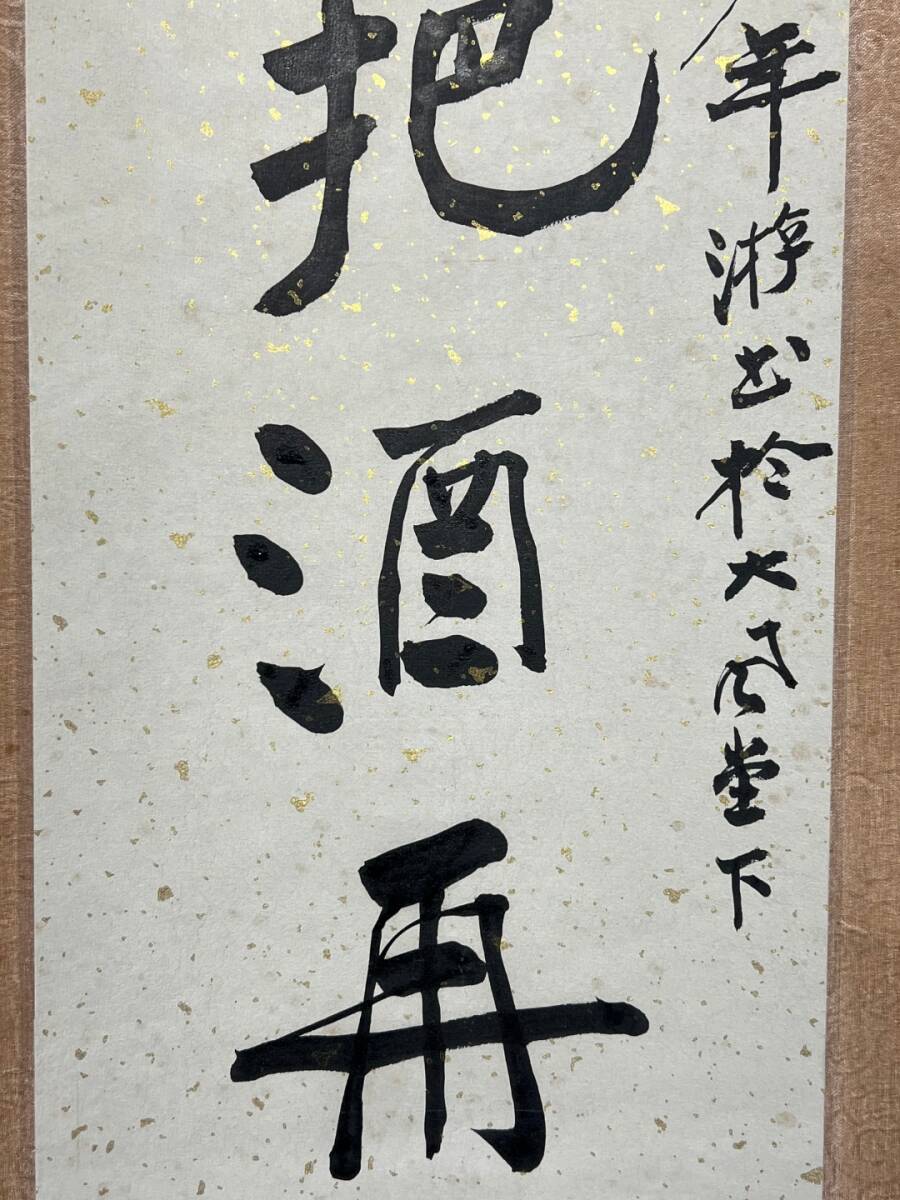 年游书於大风堂下
把酒再